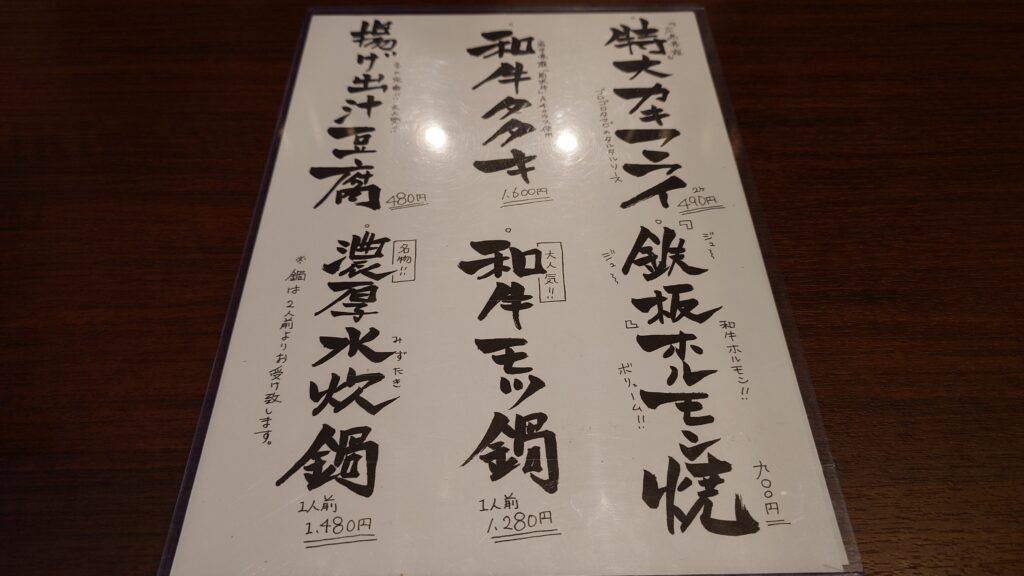 特大カキフライ
2ヶ
490円
和牛タタキ
1.600円
揚げ出汁豆腐
480円
『鉄板ホルモン焼』
ジュ〜
ジュ〜
和牛ホルモン!!
ボリューム!!
九〇〇円
大人気!!
和牛モツ鍋
1人前
1.280円
名物!!
濃厚水炊鍋
みずたき
1人前
1.480円
※鍋は2人前よりお受け致します。